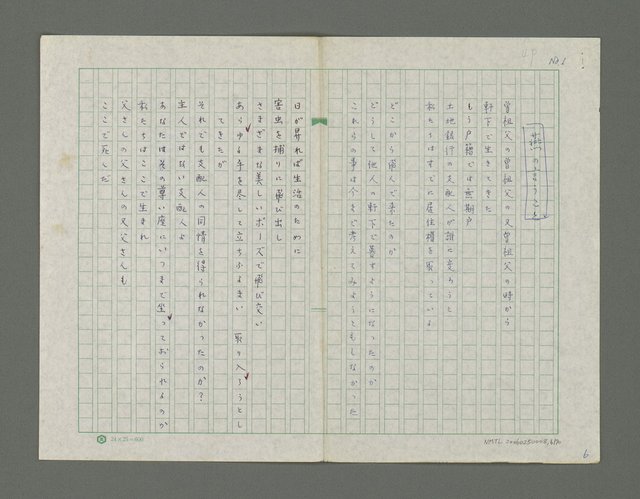 No.6
燕の言うこと
曽祖父の曽祖父の又曽祖父の時から
軒下で生きてきた
もう戸籍では無期戸
土地銀行の支配人が誰に変ろうと
私たちはすでに居住権を取っている
どこから飛んで来たのか
どうして他人の軒下で暮すようになったのか
これらの事は今まで考えてみようともしなかった
日が昇れば生活のために
害虫を捕りに飛び出し
さまざまな美しいポーズで飛び交い
あらゆる手を尽して立ちふるまい 取り入ろうとし
てきたが
それでも支配人の同情を得られなかったのか?
主人ではない支配人よ
あなたは其の尊い座にいつまで坐っておられるのか
私たちはここで生まれ
父さんの父さんの又父さんも
ここで死んだ
24×25=600
6